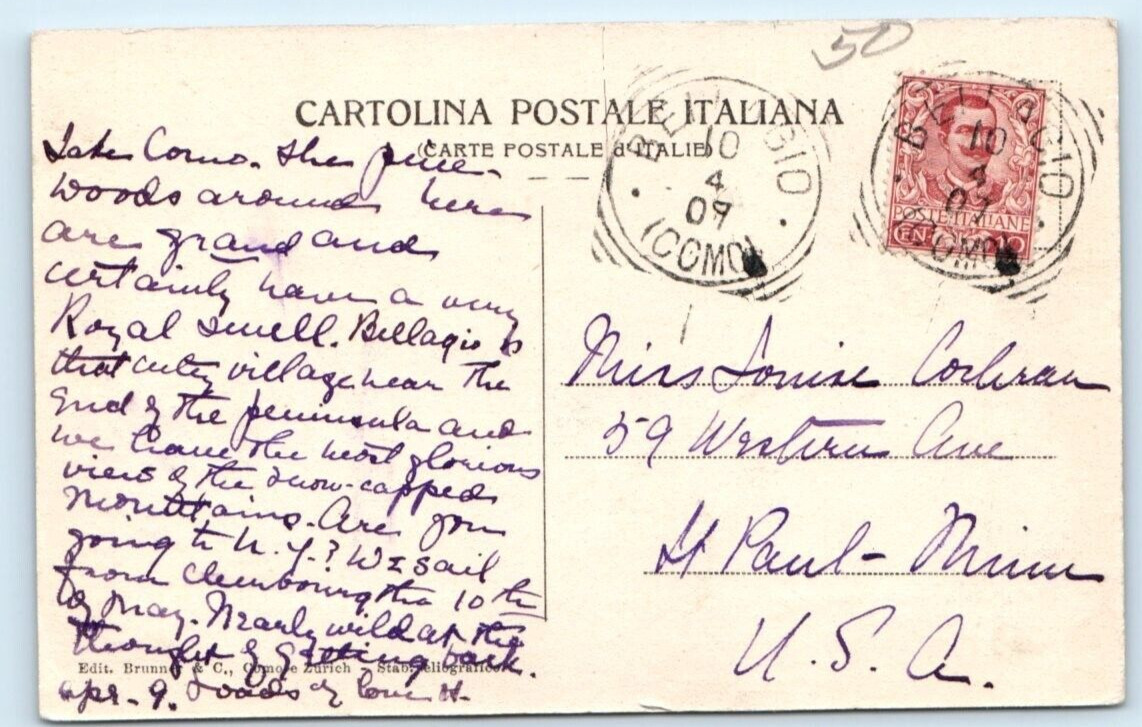 50
CARTOLINA POSTALE ITALIANA
(CARTE POSTALE d'ITALIE)
BELLAGIO
10
4
09
(COMO)
BELLAGIO
10
4
09
(COMO)
POSTE ITALIANE
Lake Como. The pine
woods around here
are grand and
certainly have a very
Royal smell. Bellagio is
that cutey village near the
End of the peninsula and
we have the most glorious
views of the snow-capped
mountains. Are you
going to N.Y.? We sail
from Cherbourg the 10th
of May. Nearly wild at the
thought of getting back.
Edit. Brunner & C., Como e Zürich - Stab. eliografico
Apr. 9. Loads of love H.
Miss Louise Cochran
59 Western Ave
St Paul - Minn
U. S. A.